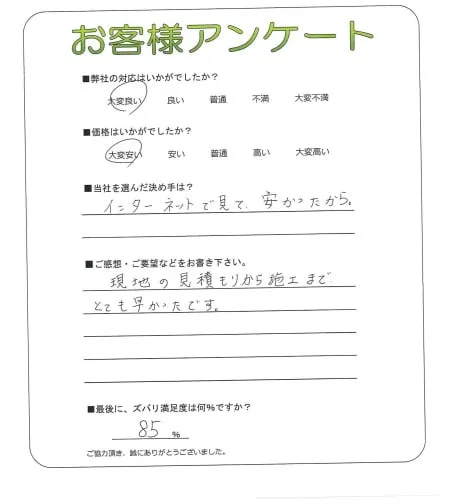 お客様アンケート
■弊社の対応はいかがでしたか？
大変良い 良い 普通 不満 大変不満
■価格はいかがでしたか？
大変安い 安い 普通 高い 大変高い
■当社を選んだ決め手は？
インターネットで見て、安かったから。
■ご感想・ご要望などをお書き下さい。
現地の見積もりから施工まで
とても早かったです。
■最後に、ズバリ満足度は何％ですか？
85 ％
ご協力頂き、誠にありがとうございました。